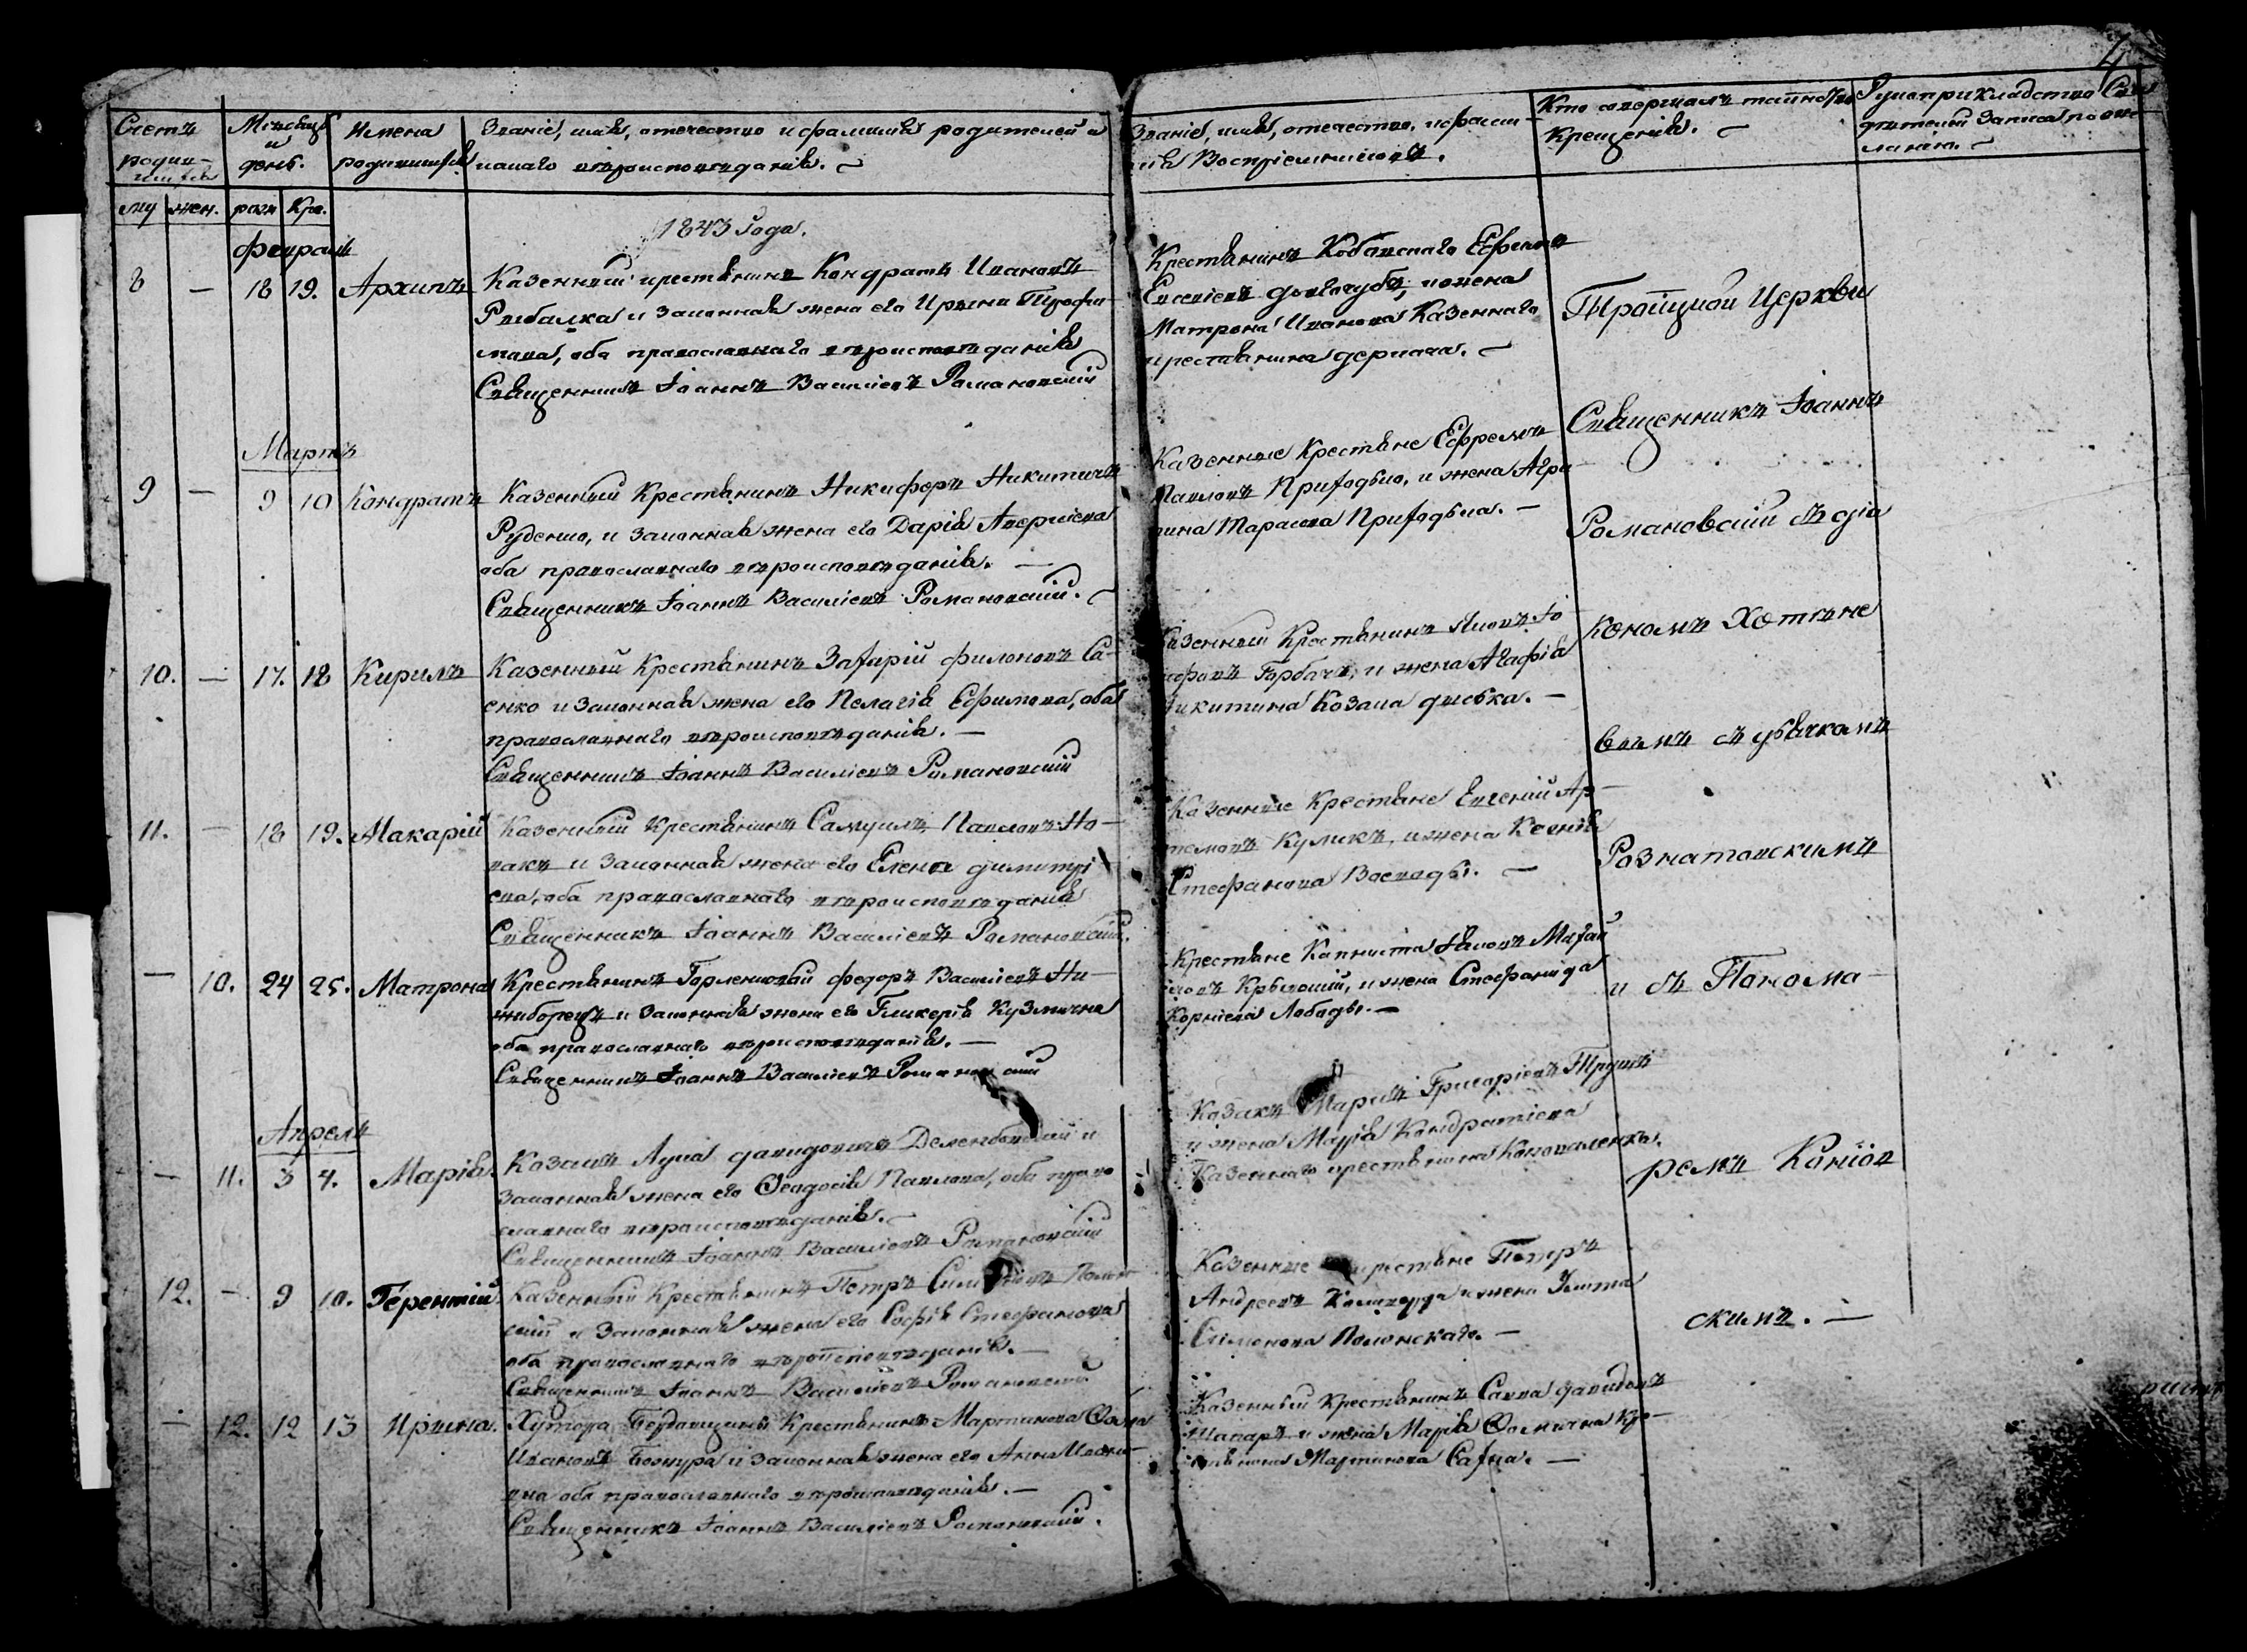 4
Счетъ родившихся
Мѣсяцъ и день.
Имена родившихся
Званіе, имя, отечество и фамилія родителей и
какаго вѣроисповѣданія.
Званіе, имя, отечество, и фами-
лія Воспріемниковъ.
Кто совершалъ таинство
Крещенія.
Рукоприкладство Сви
дѣтелей Записи по же
ланію.
му жен. рож Кре.
1843 Года.
Февраль
8 — 18 19. Архипъ
Казенный крестянинъ Кондратъ Ивановъ
Рыбалка и Законная жена его Ирина Трофи
мова, оба православнаго вѣроисповѣданія
Священникъ Іоаннъ Василіевъ Романовскій
Крестянинъ Кобанскаго Ефремъ
Евсевіевъ и жена
Матрона Иванова Казеннаго
крестянина деркача.
Мартъ
9 — 9 10 Кондратъ
Казенный Крестянинъ Никифоръ Никитинъ
Руденко, и Законная жена его Дарія Аверкіева
оба православнаго вѣроисповѣданія. —
Священникъ Іоаннъ Василіевъ Романовскій.
Казенные Крестяне Ефремъ
Павловъ Приходько, и жена Агри
пина Тарасова Приходька. —
10. — 17. 18 Кирилъ
Казенный Крестянинъ Захарій Филоновъ Са-
енко и Законная жена его Пелагія Ефимова, оба
православнаго вѣроисповѣданія. —
Священникъ Іоаннъ Василіевъ Романовскій
Казенный Крестянинъ Яковъ Іо
сифовъ Горбачъ, и жена Агафія
Никитина Козака —
11. — 18 19. Макарій
Казенный Крестянинъ Самуилъ Павловъ Но-
вакъ и Законная жена его Елена димитрі
ева, оба православнаго вѣроисповѣданія
Священникъ Іоаннъ Василіевъ Романовскій.
Казенные Крестяне Евгеній Ар-
темовъ Куликъ, и жена Ксенія
Стефанова Воеводы. —
— 10. 24 25. Матрона
Крестянинъ Горленковой Федоръ Василіевъ Ни-
жиборецъ и Законная жена его Гликерія Кузмична
оба православнаго вѣроисповѣданія. —
Священникъ Іоаннъ Василіевъ Романовскій
Крестяне Капниста Яковъ Михай
ловъ и жена Стефанида
Корніева Лободы. —
Апрель
— 11. 3 4. Марія.
Козакъ Лука давидовичъ и
Законная жена его Феодосія Павлова, оба право
славнаго вѣроисповѣданія.
Священникъ Іоаннъ Василіевъ Романовскій
Козакъ Маркъ Григоріевъ Трушъ
и жена Марія Кондратіева
Казеннаго крестянина Коноваленка.
12. — 9 10. Терентій.
Казенный Крестянинъ Петръ Симоновъ Полон
скій и Законная жена его Софія Стефанова
оба православнаго вѣроисповѣданія. —
Священникъ Іоаннъ Василіевъ Романовскій
Казенные крестяне Петръ
Андреевъ и жена Улита
Симонова Полонскаго. —
— 12. 12 13 Ирина.
Хутора Крестянинъ Мартинова Фома
Ивановъ Божура и Законная жена его Анна Ивано
вна оба православнаго вѣроисповѣданія. —
Священникъ Іоаннъ Василіевъ Романовскій.
Казенный Крестянинъ Савва давидовъ
Шаваръ и жена Марія Фомична Кре-
стянина Мартинова Сахна. —
Троицкой Церкви
Священникъ Іоаннъ
Романовскій съ діа
кономъ Хотяне
вымъ съ дьякомъ
Розматовскимъ
и съ Понома-
ремъ Коніов
скимъ. —